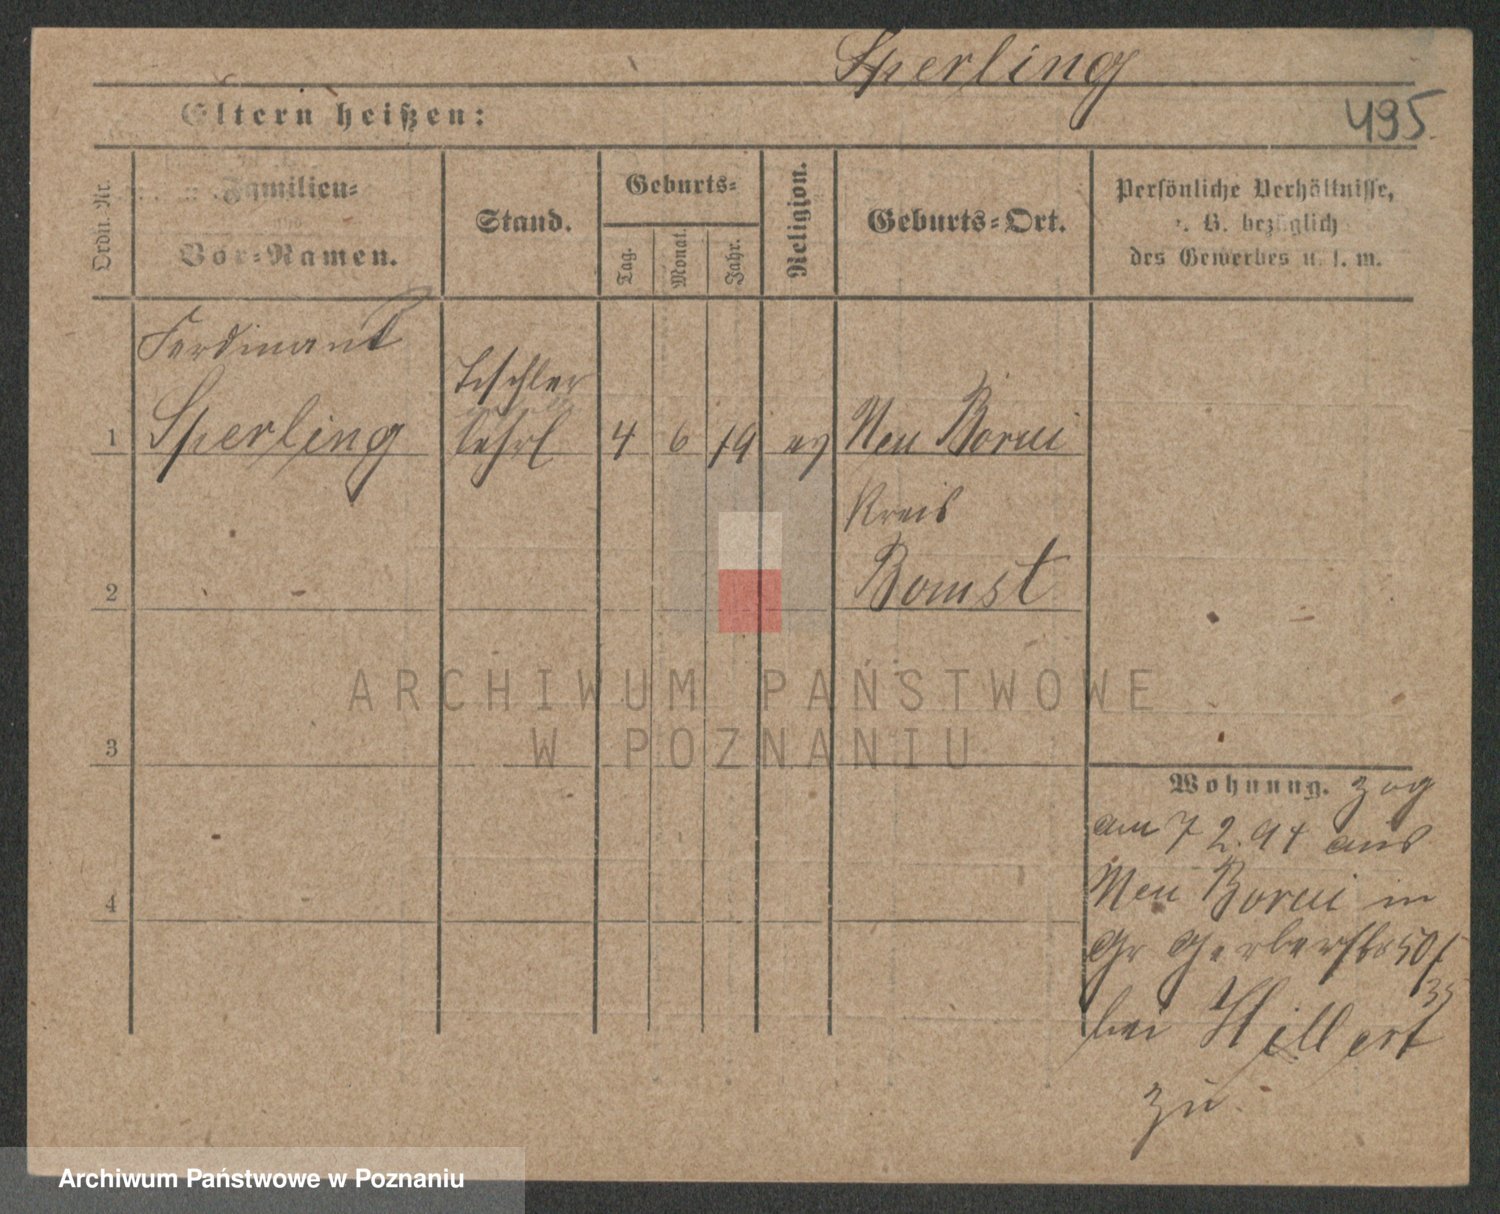 Sperling
Eltern heißen:
495
Ordn. Nr.
Familien=
Vor=Namen.
Stand.
Geburts=
Tag.
Monat.
Jahr.
Religion.
Geburts=Ort.
Persönliche Verhältnisse,
z. B. bezüglich
des Gewerbes u. s. w.
Ferdinand
Tischler
1 Sperling Lehrl 4 6 79 ev Neu Borui
Kreis
2 Bomst
ARCHIWUM PAŃSTWOWE
W POZNANIU
3
Wohnung. zog
am 7 2. 94 aus
4
Neu Borui in
Gr Gerberstr 50/
35
bei Hillert
zu.
Archiwum Państwowe w Poznaniu